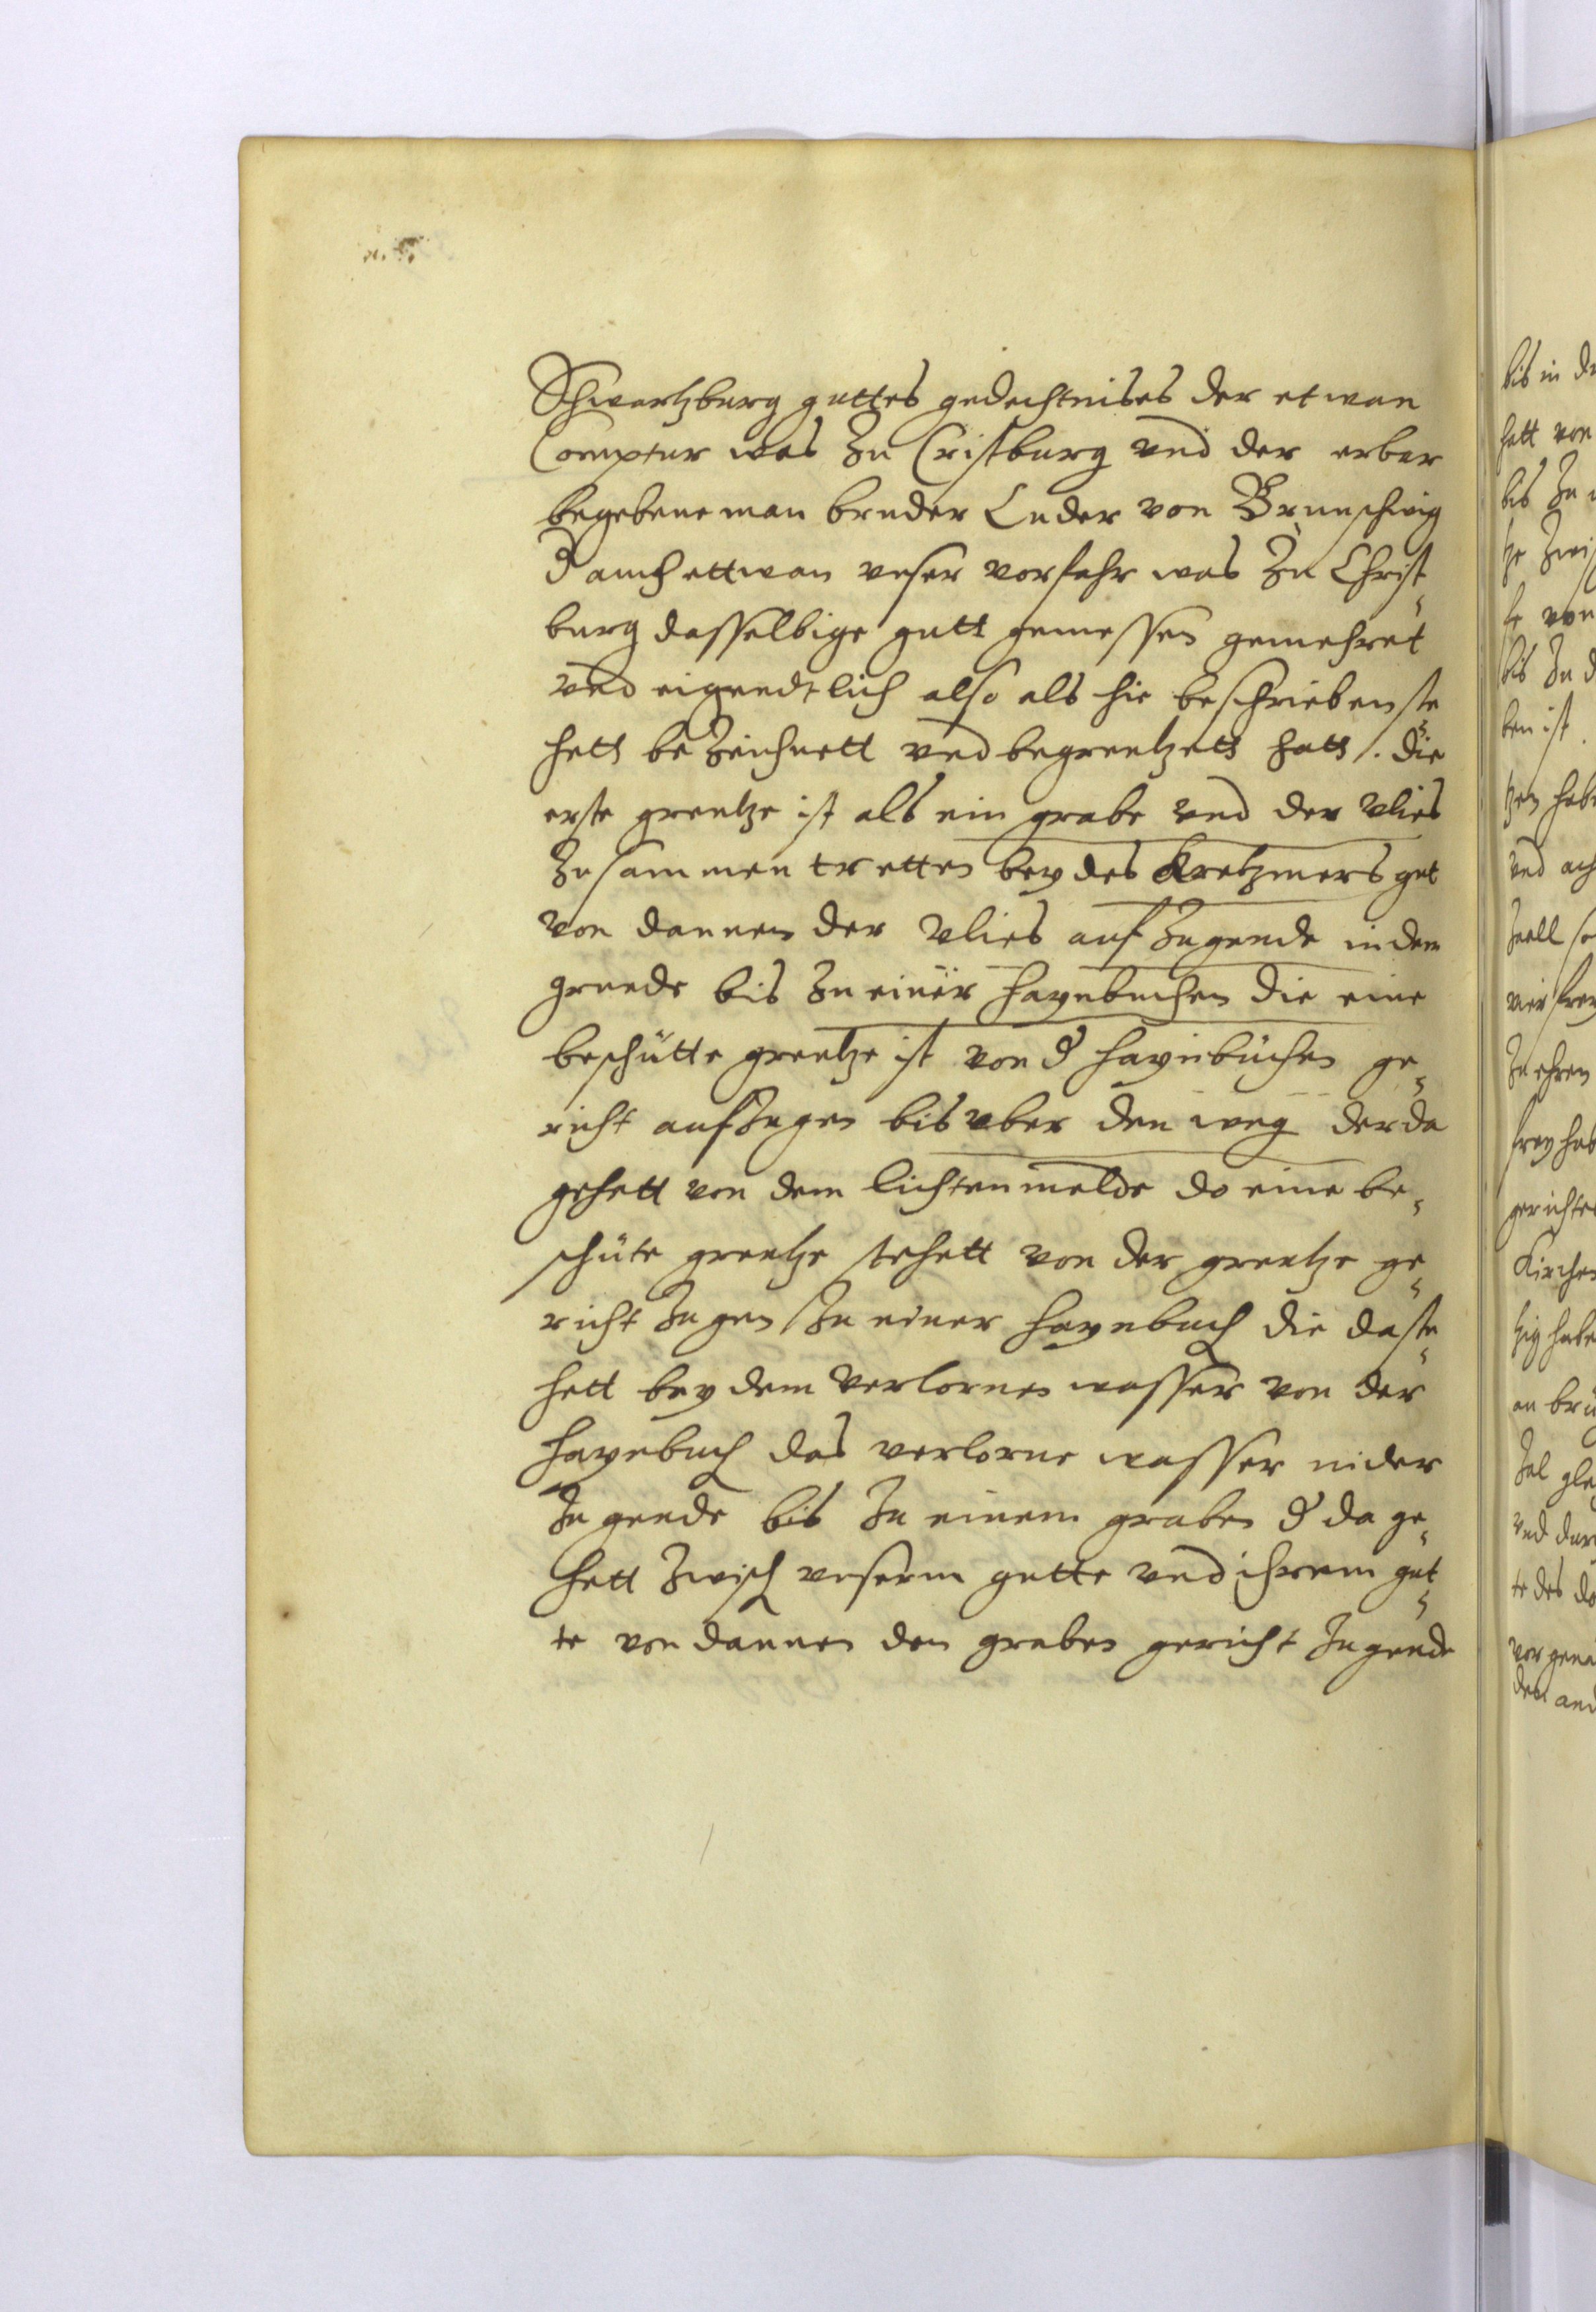 Schwartzburg guttes gedechtnises der etwan
Comptur was zu Cristburg vnd der erber
begebene man bruder Luder von Brunschwig
d auch ettwan vnser vorfahr was zu Christ
burg dasselbige gutt gemessen gemehret
vnd eigendtlich also als hie beschrieben ste
hett bezeichnett vnd begrentzett hatt. die
erste grentze ist als ein grabe vnd der vlies
zusammen tretten bey des Kretzmers gut
von dannen der vlies auf zugende in dem
grunde bis zu einer haynbuchen die eine
beschütte grentze ist von d haynbüchen ge
richt aufzugen bis vber den weg der da
gehett von dem lichtenwelde do eine be
schüte grentze stehett von der grentze ge
richt zugen zu einer haynbuch die da ste
hett bey dem verlornen wasser von der
haynbuch das verlorne wasser nider
zugende bis zu einem graben d da ge
hett zwisch vnserm gutte vnd ihrem gut
te von dannen den graben gericht zugende
bis in
hett von
bis zu
tze
von
bis zu
ben ist
vnd
zu ehren
frey hab
gerichte
Kirchen
an
vnd
te des
den and